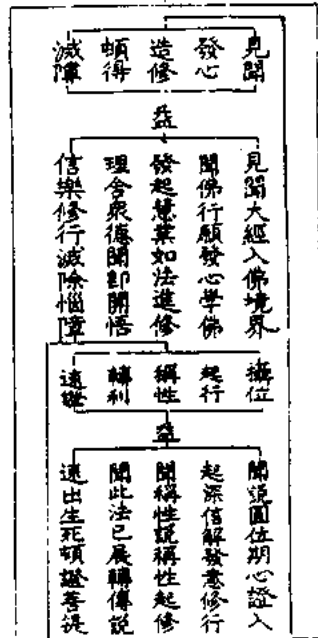 見聞
發心
造修
頓得
滅障
益
見聞大經入佛境界
聞佛行願發心學佛
發起慧業如法進修
理舍衆德聞即開悟
信樂修行滅除惱障
攝位
起行
稱性
轉利
速證
益
聞說圓位期心證入
起深信解發意修行
聞稱性說稱性起修
聞此法已展轉傳說
速出生死頓證菩提